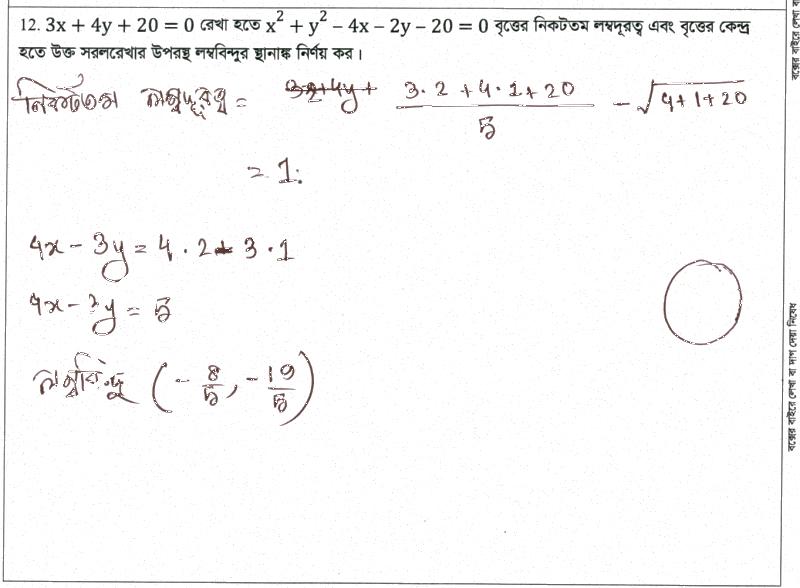 12. 3x + 4y + 20 = 0 রেখা হতে x² + y² − 4x − 2y − 20 = 0 বৃত্তের নিকটতম লম্বদূরত্ব এবং বৃত্তের কেন্দ্র
হতে উক্ত সরলরেখার উপরস্থ লম্ববিন্দুর স্থানাঙ্ক নির্ণয় কর।
নিকটতম লম্বদূরত্ব = (3·2 + 4·1 + 20)/5 − √(4+1+20)
= 1.
4x − 3y = 4·2 − 3·1
4x − 3y = 5
লম্ববিন্দু (−8/5, −19/5)
বক্সের বাইরে লেখা বা দাগ দেয়া নিষেধ
বক্সের বাইরে লেখা ব